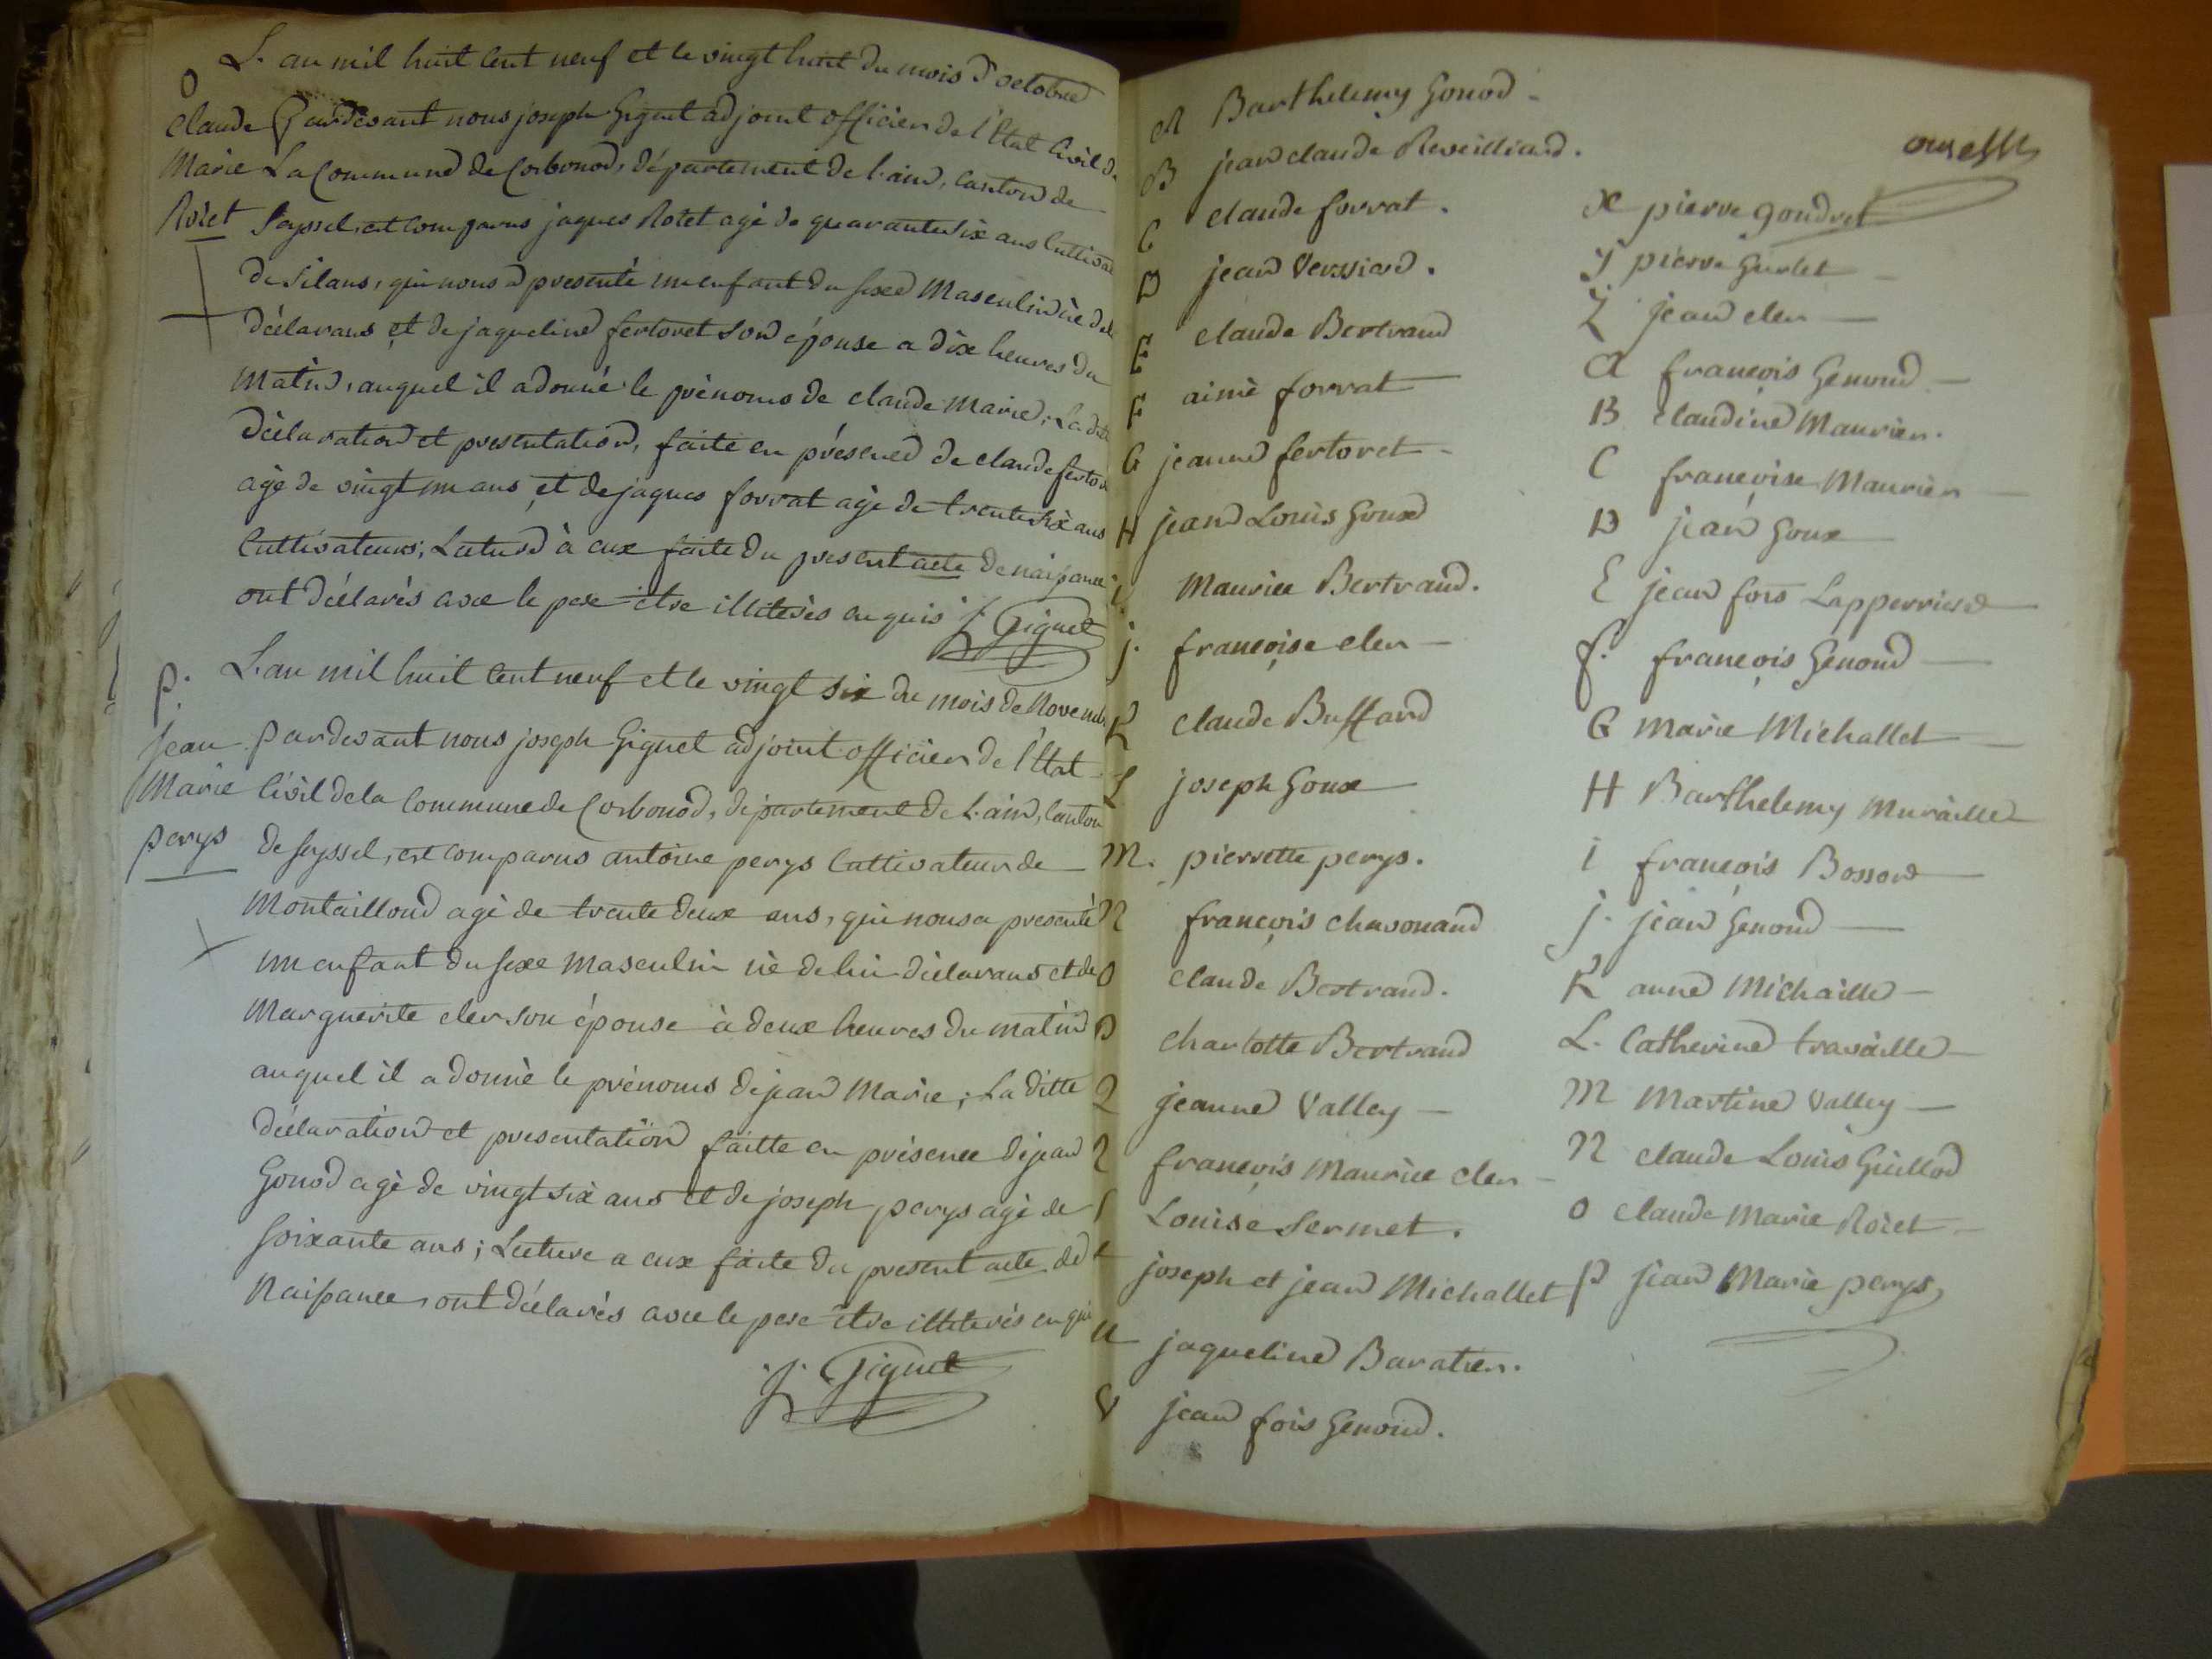 O
L'an mil huit cent neuf et le vingt huit du mois d'octobre
Claude Pardevant nous joseph Giguet adjoint officier de l'Etat Civil de
Marie La Commune de Corbonod, département de l'ain, canton de
Roïet Seyssel, est comparus jaques Roïet agé de quarante six ans Cultivat
de Silans, qui nous a presenté un enfant du sexe Masculin né de
déclarans et de jaqueline fertoret son épouse a dix heures du
Matin, auquel il a donné le prénoms de claude Marie; La ditte
déclaration et presentation, faite en présence de claude fertor
agé de vingt un ans et de jaques forrat agé de trente six ans
Cultivateurs; Lecture à eux faite du present acte de naissance
ont déclarés avec le pere etre illiterés enquis J. Giguet
P.
L'an mil huit cent neuf et le vingt six du mois de Novemb
Jean Pardevant nous joseph Giguet adjoint officier de l'Etat
Marie Civil de la Commune de Corbonod, département de l'ain, Canton
perys de Seyssel, est comparus antoine perys Cultivateur de
Montailloud agé de trente deux ans, qui nous a presenté
un enfant du sexe Masculin né de lui déclarans et de
Marguerite cler son épouse à deux heures du matin
auquel il a donné le prénoms de jean Marie; La ditte
déclaration et presentation faitte en présence de jean
Gonod agé de vingt six ans et de joseph perys agé de
soixante ans; Lecture a eux faite du present acte de
Naissance, ont déclarés avec le pere être illiterés enqui
J. Giguet
A Barthelemy Gonod
B jean claude Reveilliard.
C claude forrat.
D jean Verssiard.
E claude Bertrand
F aimé forrat
G jeanne fertoret
H jean Louis Goux
i Maurice Bertrand.
j. françoise cler
K claude Buffard
L joseph Goux
M. pierrette perys.
N françois chavonand
O claude Bertrand.
P charlotte Bertrand
Q jeanne Valley
R françois Maurice cler
S Louise Sermet.
t joseph et jean Michallet
u jaqueline Baratier.
V jean fois Genoud.
X pierre gondret
Y pierre Gurlet
Z jean cler
A françois Genoud
B claudine Maurier.
C françoise Maurier
D jean Goux
E jean fois Lapperriere
f. françois Genoud
G Marie Michallet
H Barthelemy Muraille
i françois Bosson
j. jean Genoud
K anne Michaille
L. Catherine travaille
M Martine Valley
N claude Louis Guillod
O claude Marie Roïet
P jean Marie perys